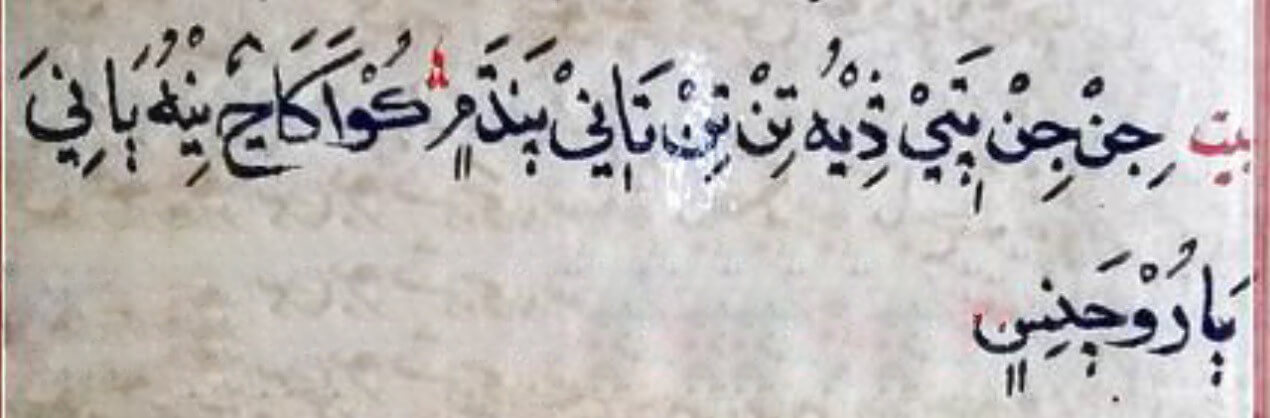 بيت جِنْ جِنْ پَتِيْ ذِيْهُ تِنْ تِنْ تَانِيْ پَنَدَمِ كُوْاَ كَاڃَ نِيْهُ پَانِيَ
پَارُوْچَنِسِ